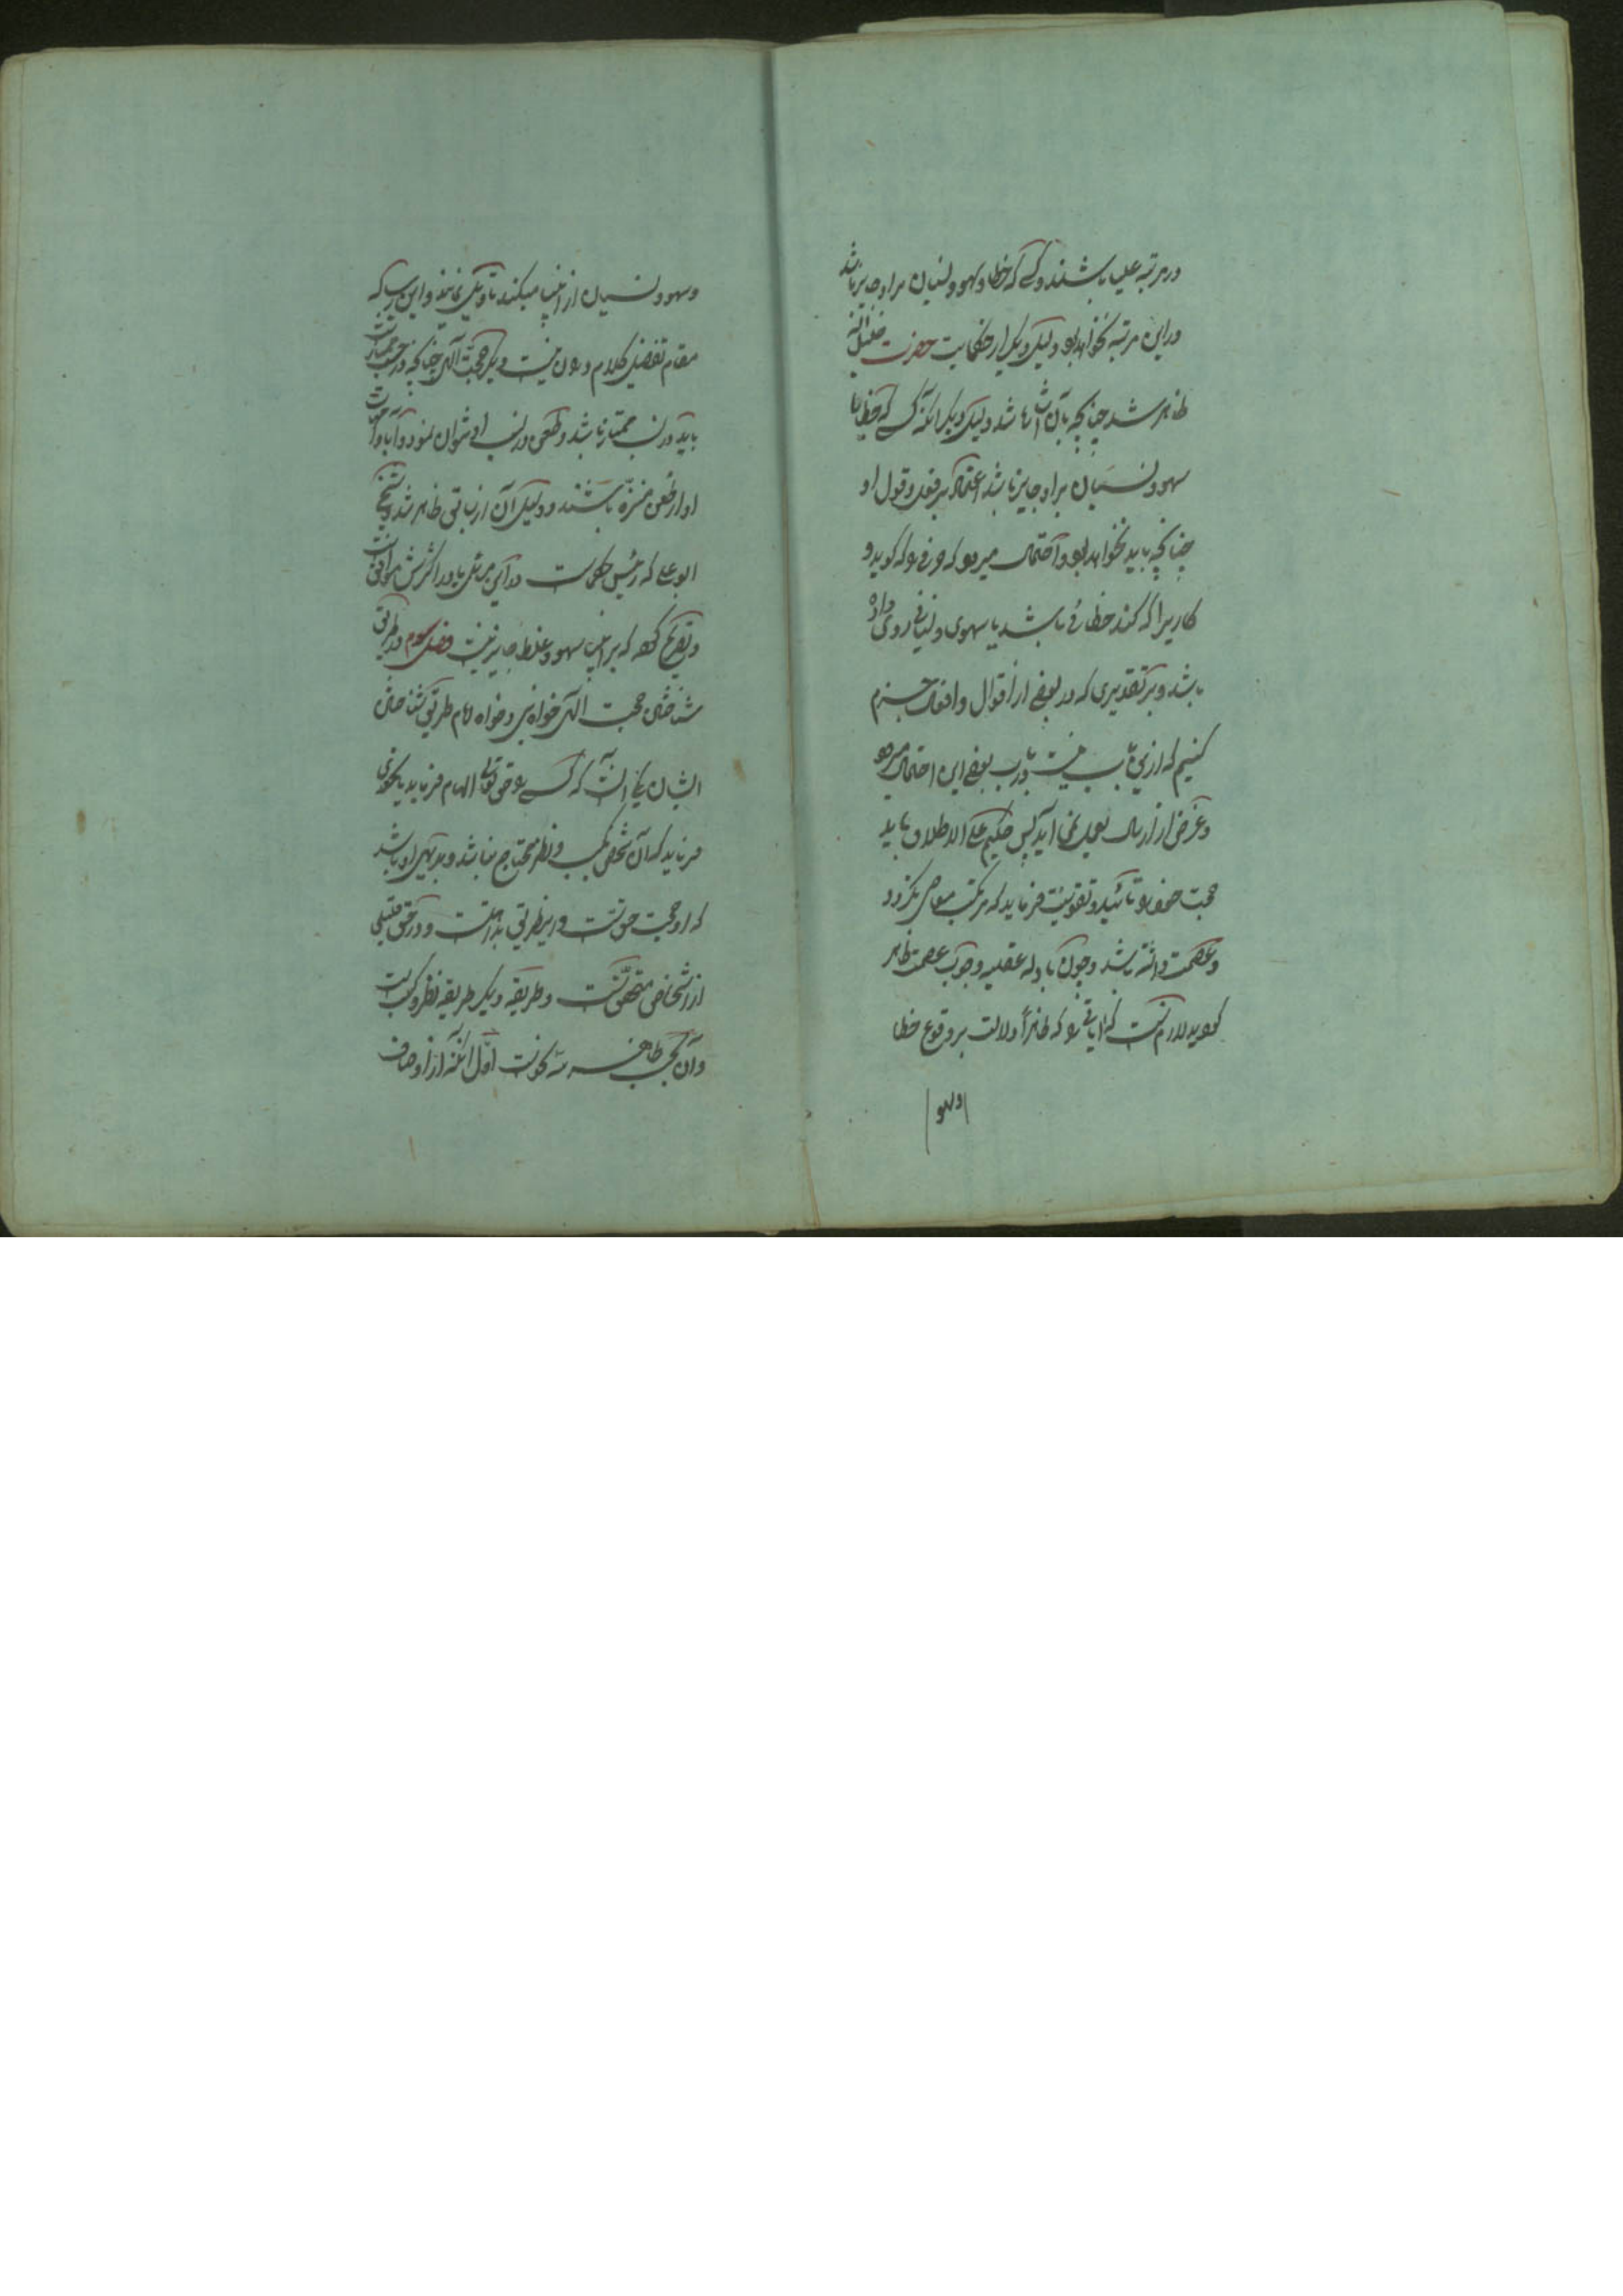 در مرتبه علیا باشند و کسی که خطا و سهو و نسیان بر او جایز باشد
در این مرتبه نخواهد بود دلیل دیگر از حکایت حضرت خلیل الله
ظاهر شد چنانچه بآن اشاره شد دلیل دیگر آنکه کسی که خطا یا
سهو و نسیان بر او جایز باشد اعتماد بر فعل و قول او
چنانچه باید نخواهد بود و احتمال میرود که حرفی را که گوید و
کاریرا که کند خطائی باشد یا سهوی و نسیانی روی داده
باشد و بر تقدیری که در بعضی از اقوال و افعال جزم
کنیم که ازین باب نیست در باب بعضی این احتمال میرود
و غرض از ارسال بعمل نمی آید پس حکیم علی الاطلاق باید
حجت خود را تائید و تقویت فرماید که مرتکب معاصی نگردد
و عصمت داشته باشد و چون بادله عقلیه وجوب عصمت ظاهر
گردید لازم است که آیاتی را که ظاهراً دلالت بر وقوع خطا
وسهو
وسهو و نسیان از انبیا میکند تاویل نمایند و این رساله
مقام تفصیل کلام در آن نیست دیگر حجت الهی چنانچه در حسب ممتاز است
باید در نسب ممتاز باشد و طعن در نسب او نتوان نمود و آبا و امهات
او از طعن منزه باشند و دلیل آن از سابق ظاهر شد و شیخ
ابو علی که رئیس حکماست در این مسائل یا در اکثرش موافق است
و تصریح کرده که بر انبیا سهو و غلط جایز نیست فصل سوم در طریق
شناختن حجت الهی خواه نبی و خواه امام طریق شناختن
ایشان یکی آنست که کسی را حق تعالی الهام فرماید یا نحوی
فرماید که آن شخص بکسب و نظر محتاج نباشد و بدیهی او باشد
که او حجت حق است و این طریق بداهت است و در حق قلیلی
از اشخاص متحقق است و طریقه دیگر طریقه نظر و کسب است
و آن بحسب ظاهر بسه گونه است اول آنکه از اوصاف